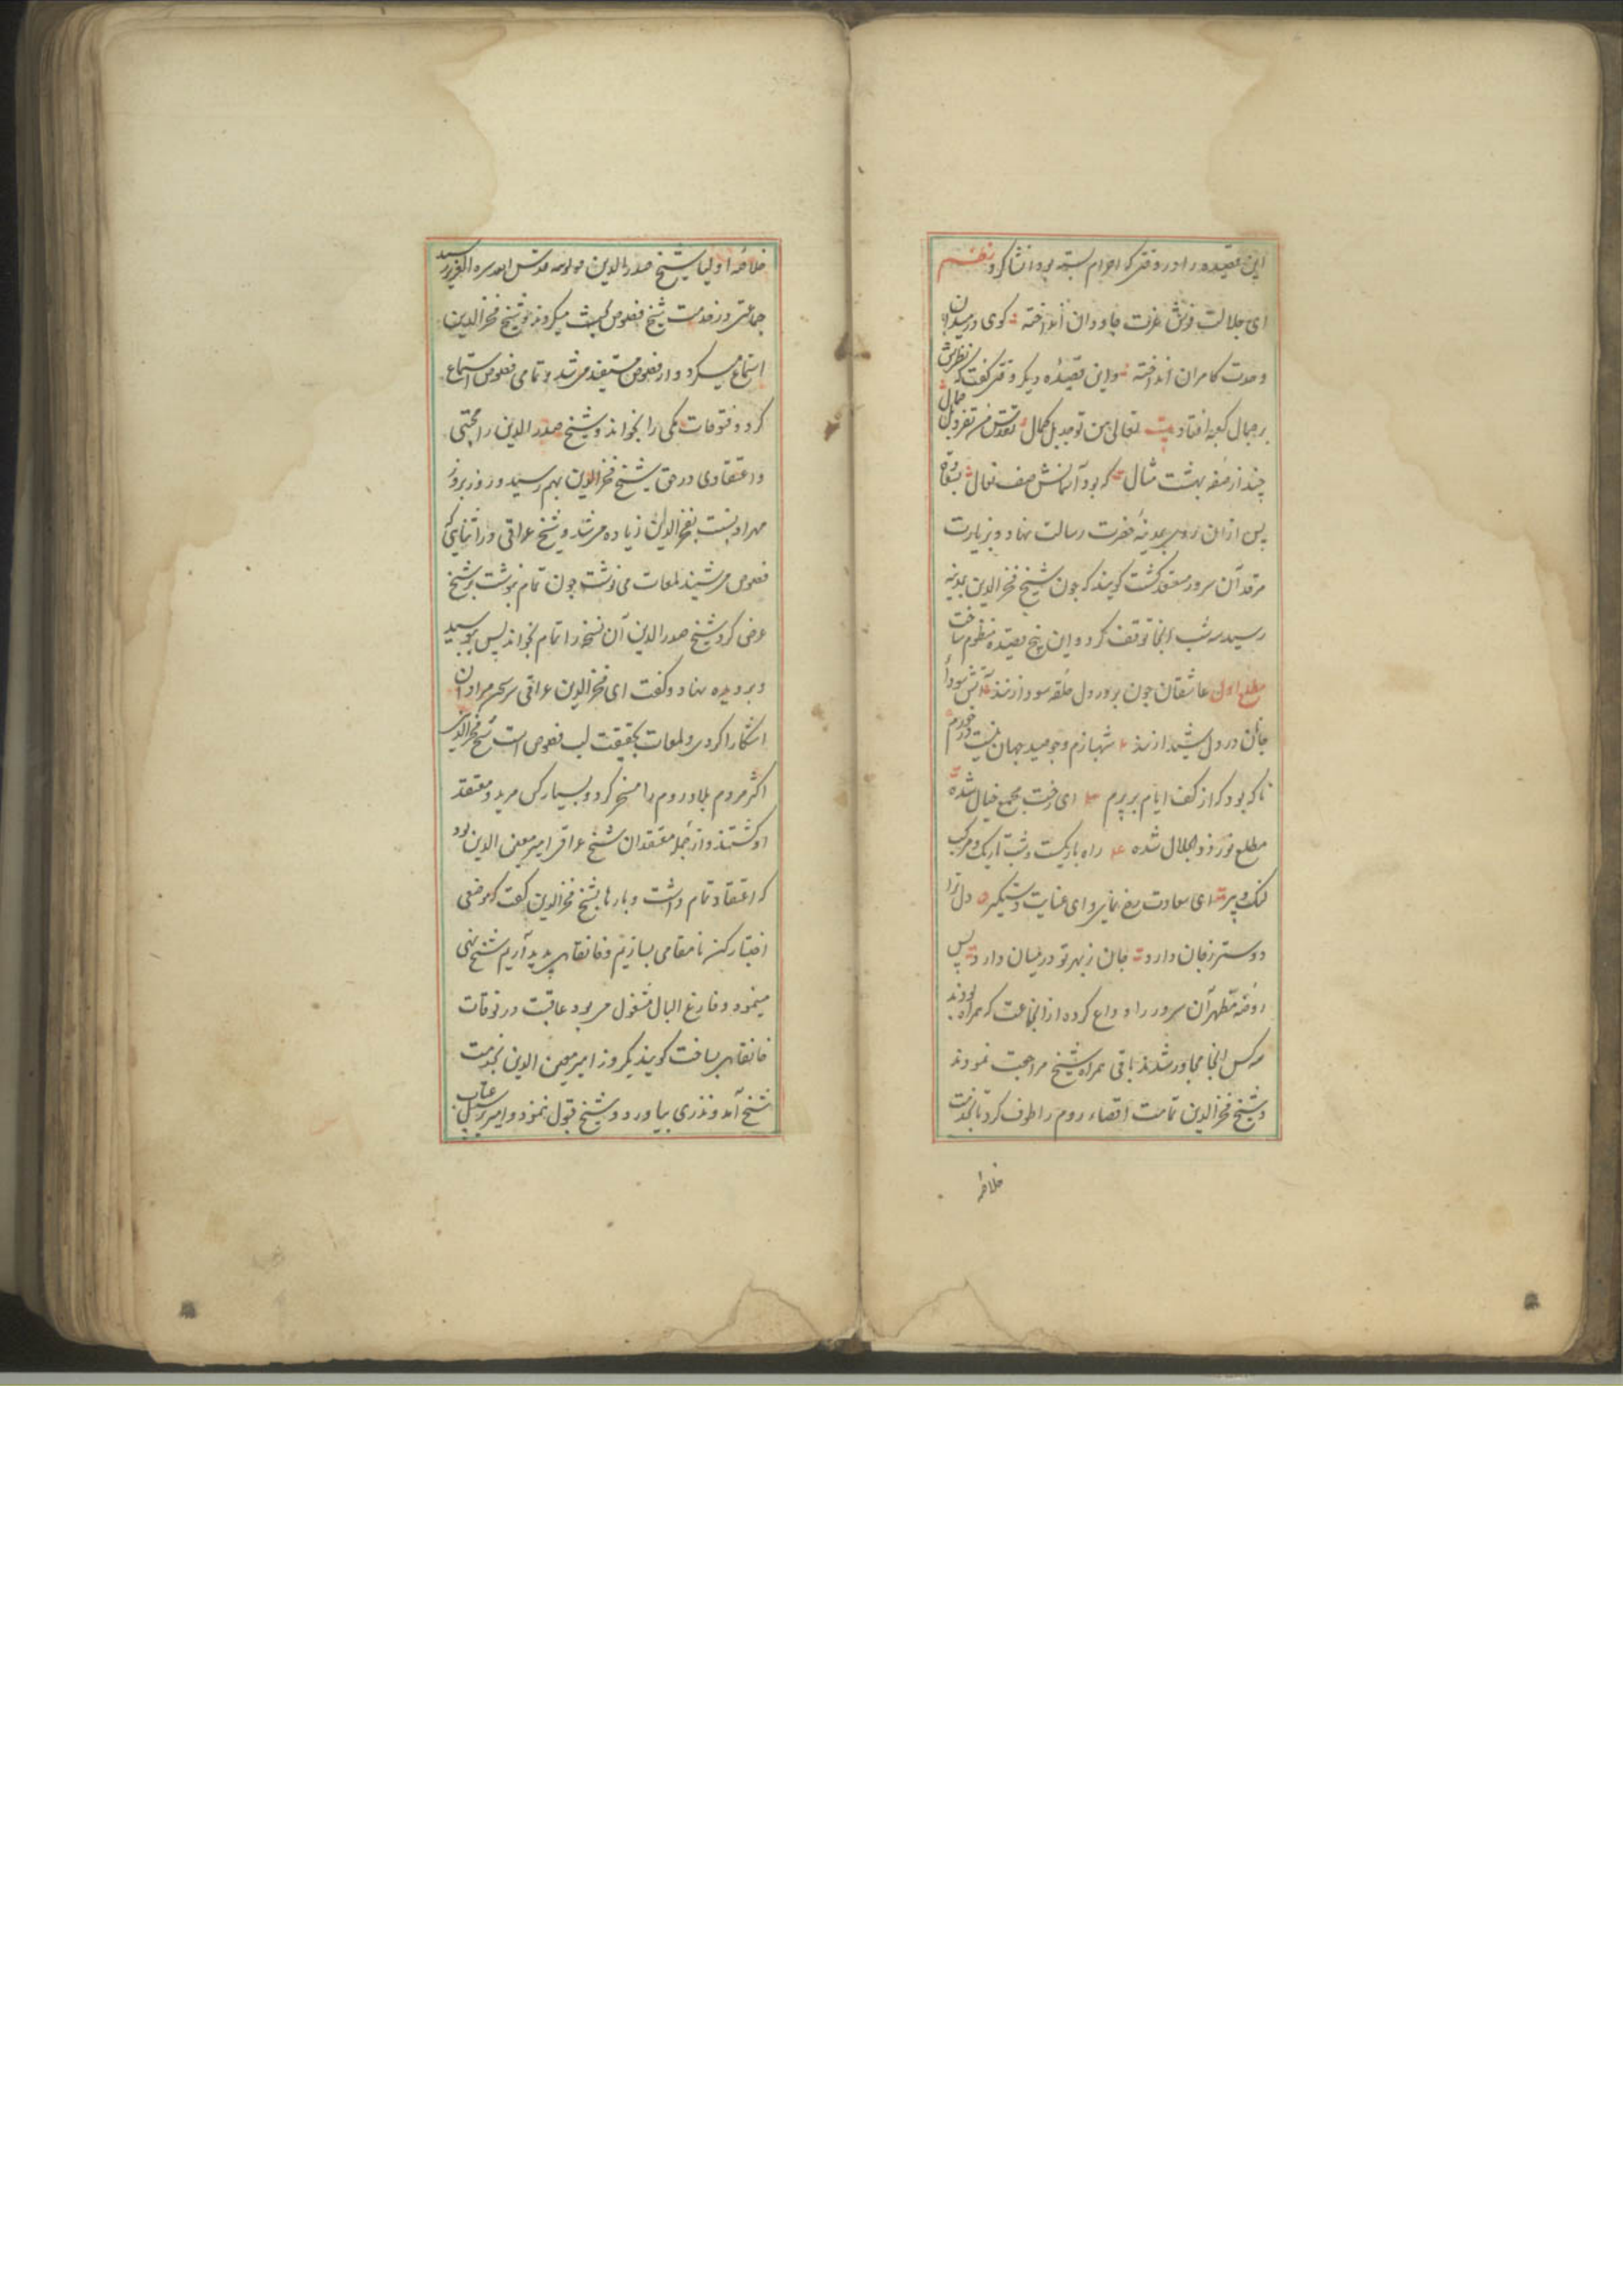 این قصیده را در وقتی که احرام بسته بود انشا کرد نظم
ای جلالت فرش عزت جاودان انداخته کوی در میدان
وحدت کامران انداخته واین قصیده دیکر وقتی کفت که نظرش
بر جمال کعبه افتاد بیت تعالی من توحد بالکمال تقدس من تفرد بالجمال
چند از صفه بهشت مثال که بود آسمانش صف نعال
پس ازان روی بمدینه حضرت رسالت نهاد و بزیارت
مرقد آن سرور مستعد کشت کویند که چون شیخ فخرالدین بمدینه
رسید سه شب آنجا توقف کرد و این پنج قصیده منظوم ساخت
مطلع اول عاشقان چون بر در دل حلقه سودا زنند آتش سودای
جانان در دل شیدا زنند شهبازم و چو صید جهان نیست در خورم
ناکه بود که از کف ایام بر پرم ای رخت مجمع خیال شده
مطلع نور ذوالجلال شده راه باریکست و شب تاریک و مرکب
لنک و پیر ای سعادت رخ نمای و ای عنایت دستکیر دل ترا
دوستر ز جان دارد جان ز بهر تو در میان دارد پس
روضه مطهر آن سرور را وداع کرده از انجماعت که همراه بودند
سه کس آنجا مجاور شدند باقی همراه شیخ مراجعت نمودند
و شیخ فخرالدین تمامت اقصاء روم را طوف کرد تا بخدمت
خلاصه
خلاصه اولیا شیخ صدرالدین قونوی قدس الله سره العزیز رسید
جماعتی در خدمت شیخ فصوص بحث میکردند و شیخ فخرالدین
استماع میکرد و از فصوص مستفید می شد و تمامی فصوص استماع
کرد و فتوحات مکی را بخواند و شیخ صدرالدین را محبتی
و اعتقادی در حق شیخ فخرالدین بهم رسید و روز بروز
مهر او نسبت بفخرالدین زیاده می شد و شیخ عراقی در اثنای آنکه
فصوص می شنید لمعات می نوشت چون تمام نوشت بر شیخ
عرض کرد شیخ صدرالدین آن نسخه را تمام بخواند پس ببوسید
و بر دیده نهاد و کفت ای فخرالدین عراقی سر سخن مردان
اشکارا کردی و لمعات بحقیقت لب فصوص است شیخ فخرالدین
اکثر مردم بلاد روم را مسخر کرد و بسیار کس مرید و معتقد
او کشتند و از جمله معتقدان شیخ عراقی امیر معین الدین بود
که اعتقاد تمام داشت و بارها بشیخ فخرالدین کفت که موضعی
اختیار کن تا مقامی بسازیم و خانقاهی پدید آریم شیخ
مینمود و فارغ البال مشغول می بود عاقبت در توقات
خانقاهی بساخت کویند یکروز امیر معین الدین بخدمت
شیخ آمد و نذری بیاورد و شیخ قبول ننمود و امیر بر سبیل عتاب